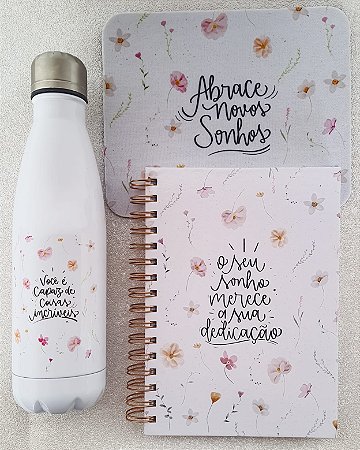 Abrace
Novos
Sonhos
Você é
Capaz de
Coisas
incríveis
O seu
sonho
merece
a sua
dedicação